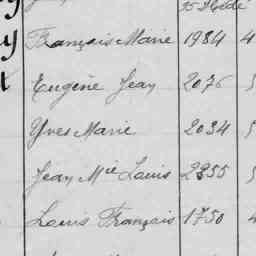 François Marie 1984 4
Eugène Jean 2076 5
Yves Marie 2034 5
Jean Mie Louis 2355 5
Louis François 1750 4